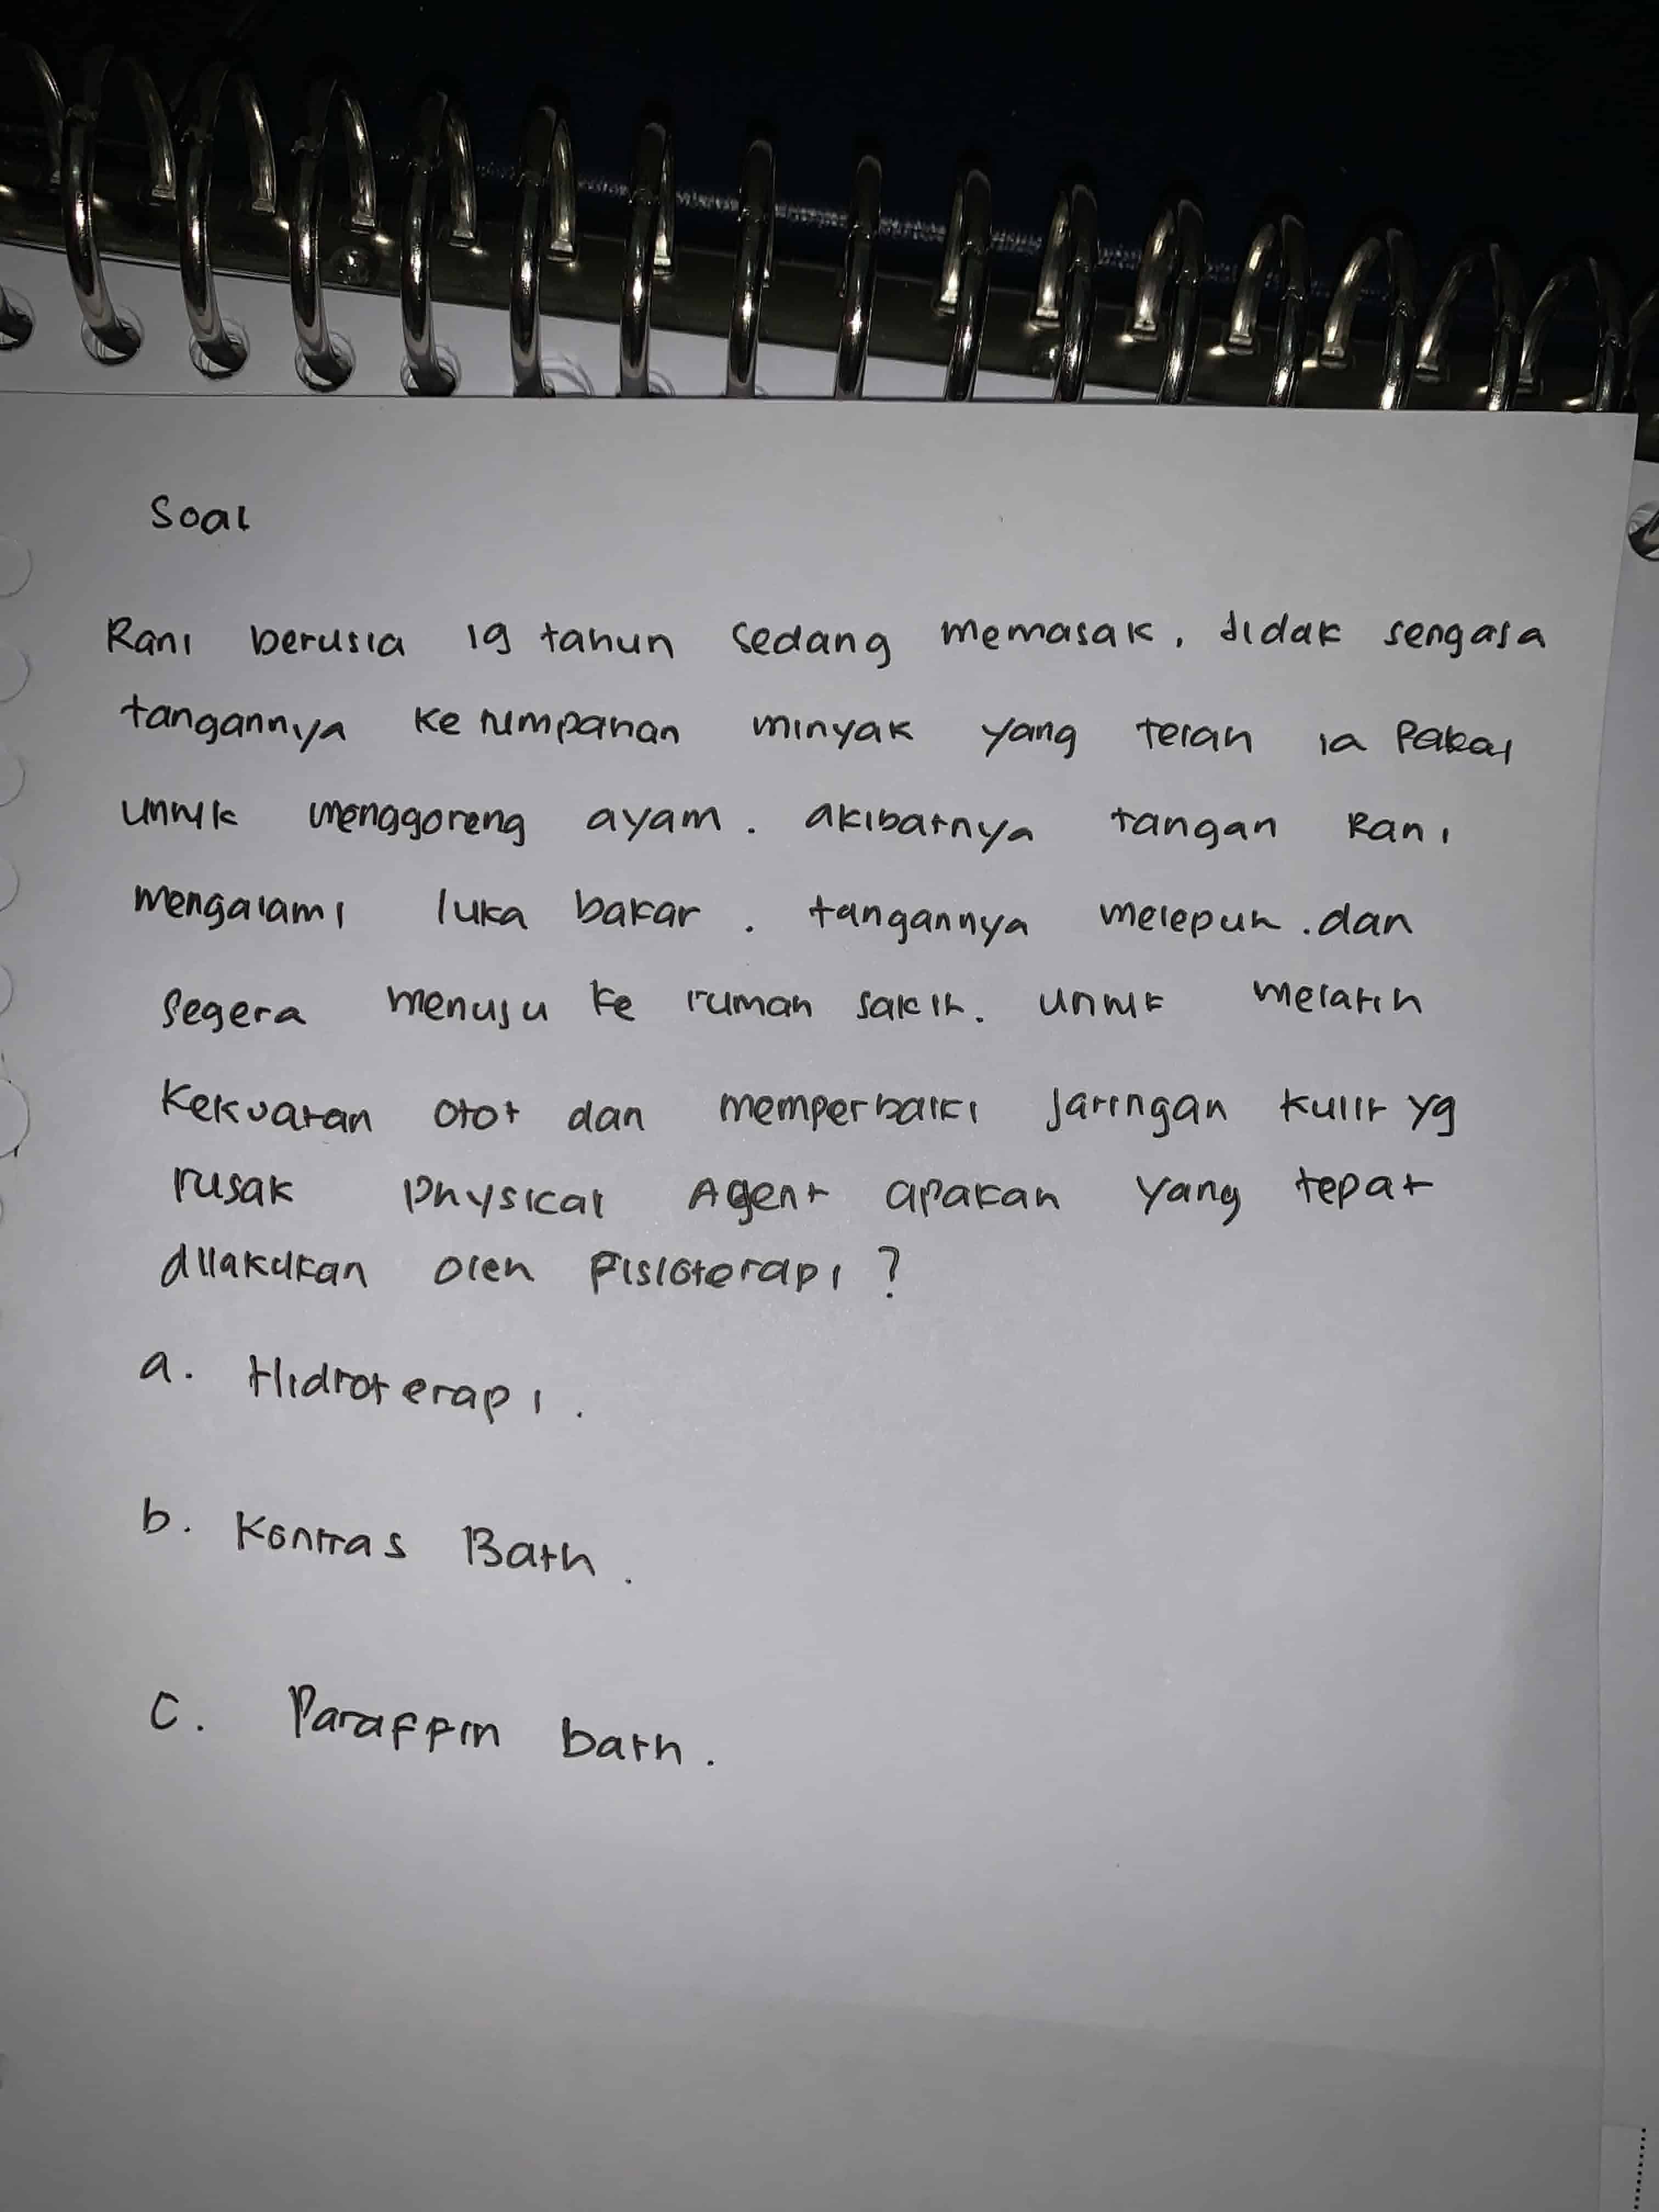 Soal
Rani berusia 19 tahun sedang memasak, tidak sengaja
tangannya ke tumpahan minyak yang telah ia Pakai
untuk menggoreng ayam. akibatnya tangan Rani
mengalami luka bakar. tangannya melepuh. dan
segera menuju ke rumah sakit. untuk melatih
kekuatan otot dan memperbaiki jaringan kulit yg
rusak physical Agent apakah yang tepat
dilakukan oleh Fisioterapi ?
a. Hidroterapi.
b. Kontras Bath.
c. Paraffin bath.